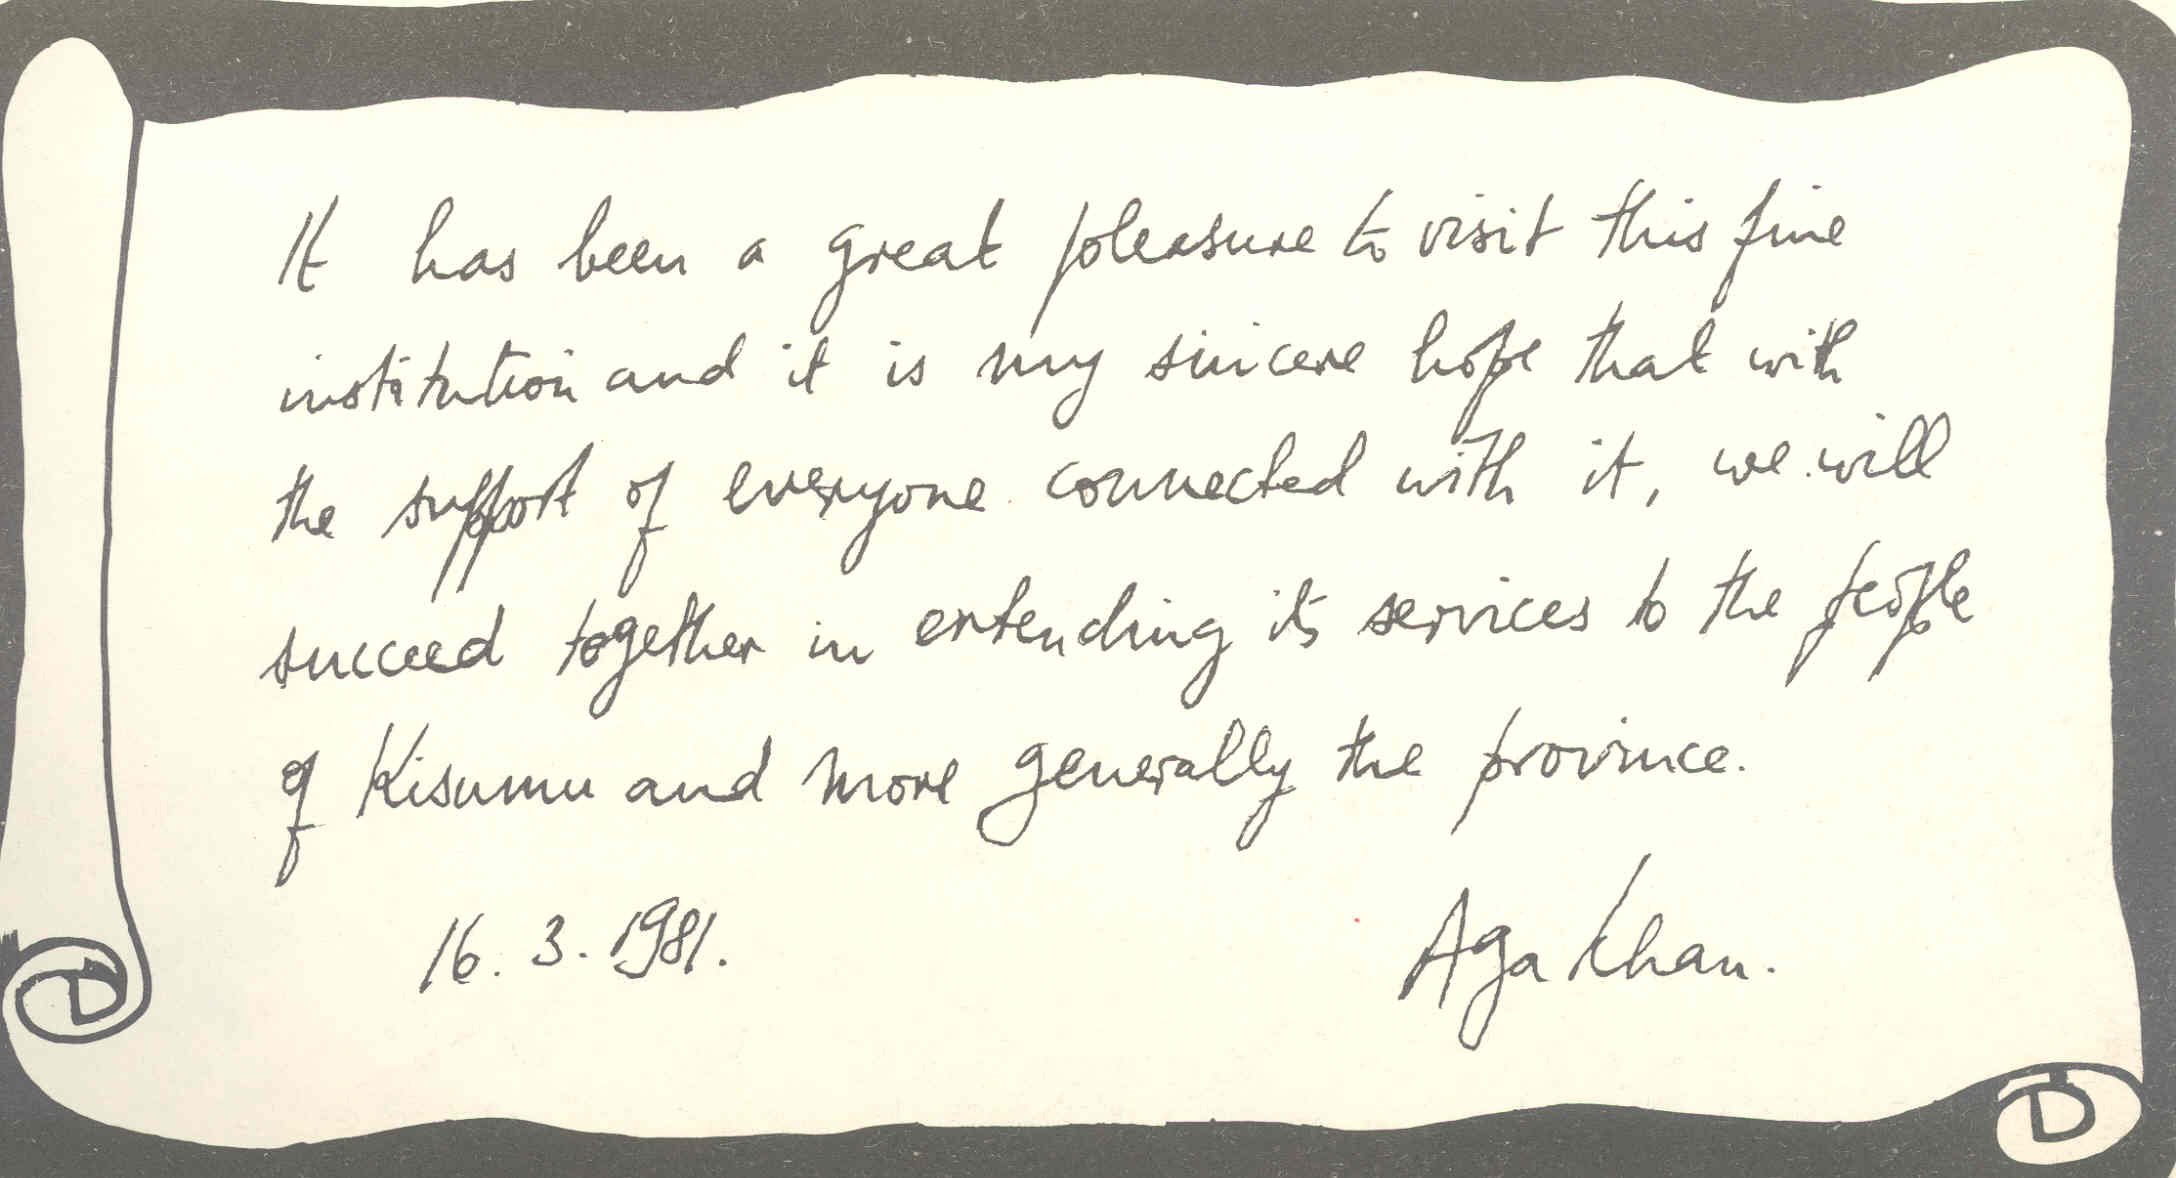 It has been a great pleasure to visit this fine
institution and it is my sincere hope that with
the support of everyone connected with it, we will
succeed together in extending its services to the people
of Kisumu and more generally the province.
16. 3. 1981.
Aga Khan.